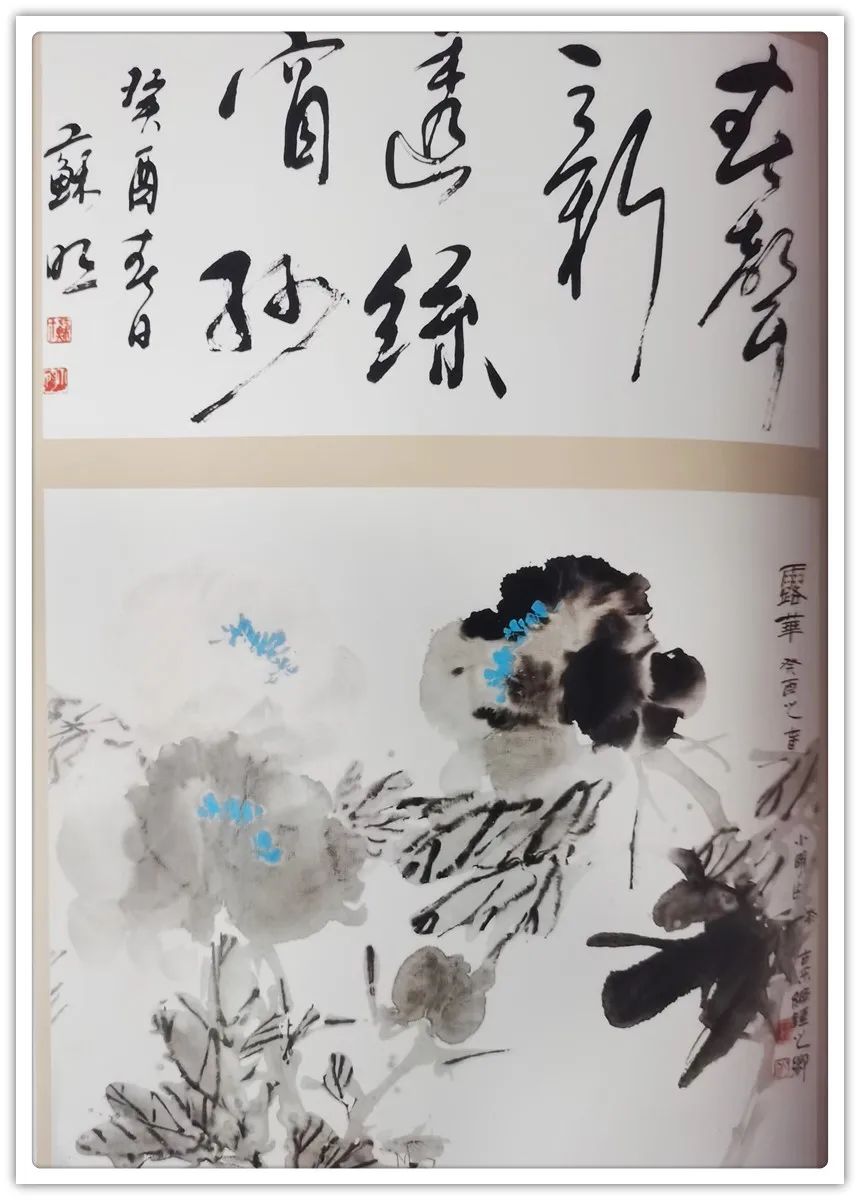 春聲
新
透綠
窗紗
癸酉春日
蘇明
露華 癸酉之春
小